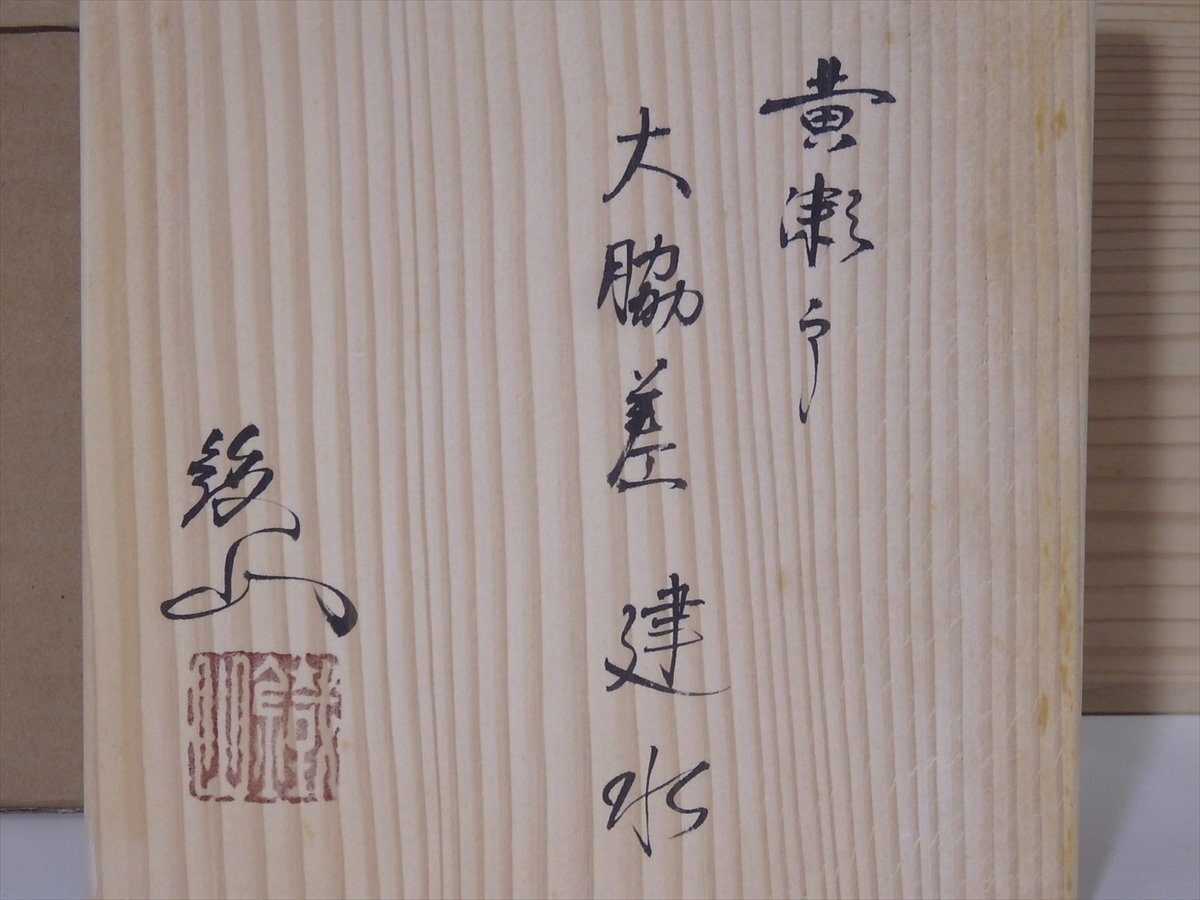 黄瀬戸
大脇差 建水
鉄山